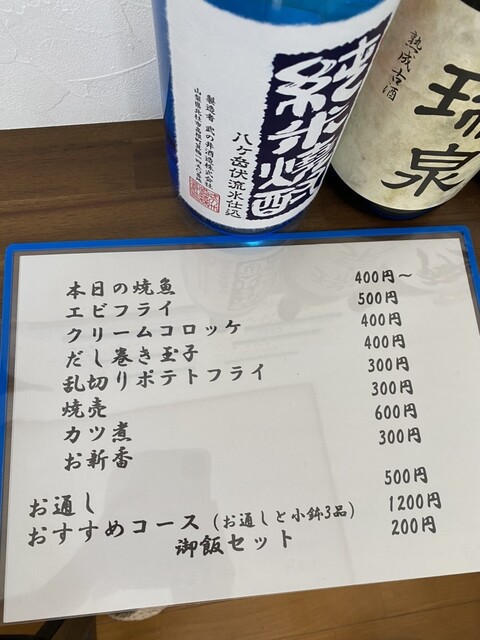 純米焼酎
八ヶ岳伏流水仕込
製造者 武の井酒造株式会社
熟成古酒
瑞泉
本日の焼魚 400円～
エビフライ 500円
クリームコロッケ 400円
だし巻き玉子 400円
乱切りポテトフライ 300円
焼売 300円
カツ煮 600円
お新香 300円
お通し 500円
おすすめコース（お通しと小鉢3品） 1200円
御飯セット 200円